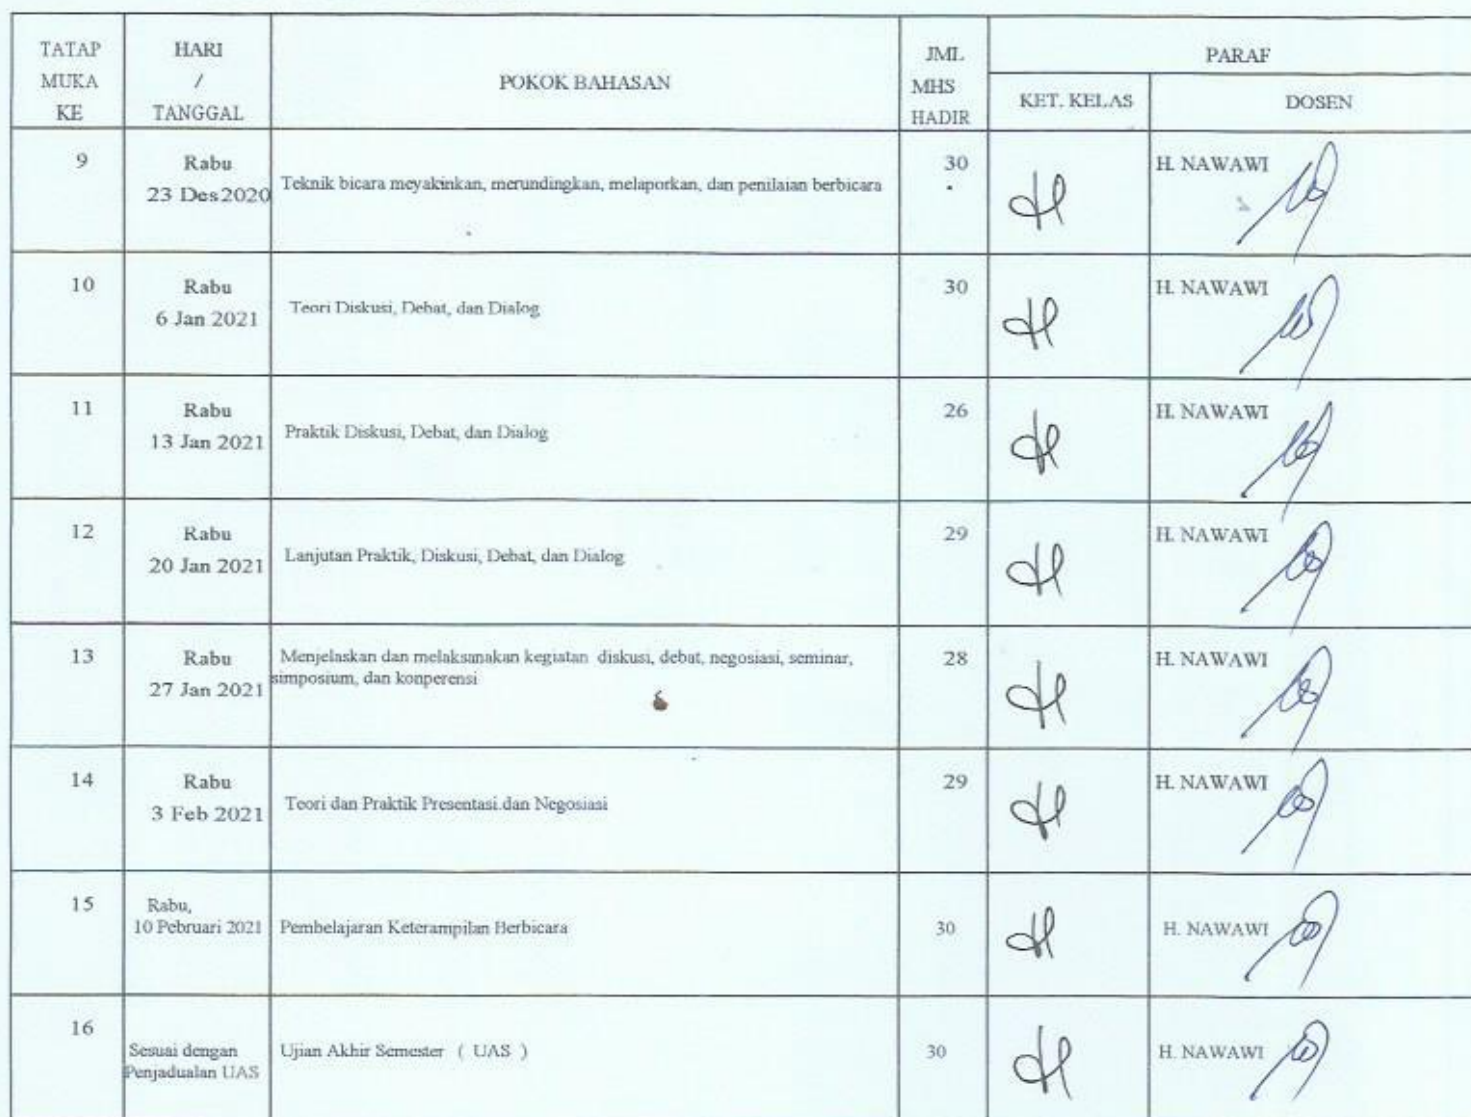 TATAP MUKA KE
HARI / TANGGAL
POKOK BAHASAN
JML MHS HADIR
PARAF
KET. KELAS
DOSEN
9
Rabu
23 Des 2020
Teknik bicara meyakinkan, merundingkan, melaporkan, dan penilaian berbicara
30
H. NAWAWI
10
Rabu
6 Jan 2021
Teori Diskusi, Debat, dan Dialog
30
H. NAWAWI
11
Rabu
13 Jan 2021
Praktik Diskusi, Debat, dan Dialog
26
H. NAWAWI
12
Rabu
20 Jan 2021
Lanjutan Praktik, Diskusi, Debat, dan Dialog
29
H. NAWAWI
13
Rabu
27 Jan 2021
Menjelaskan dan melaksanakan kegiatan diskusi, debat, negosiasi, seminar,
simposium, dan konperensi
28
H. NAWAWI
14
Rabu
3 Feb 2021
Teori dan Praktik Presentasi dan Negosiasi
29
H. NAWAWI
15
Rabu,
10 Pebruari 2021
Pembelajaran Keterampilan Berbicara
30
H. NAWAWI
16
Sesuai dengan
Penjadualan UAS
Ujian Akhir Semester ( UAS )
30
H. NAWAWI